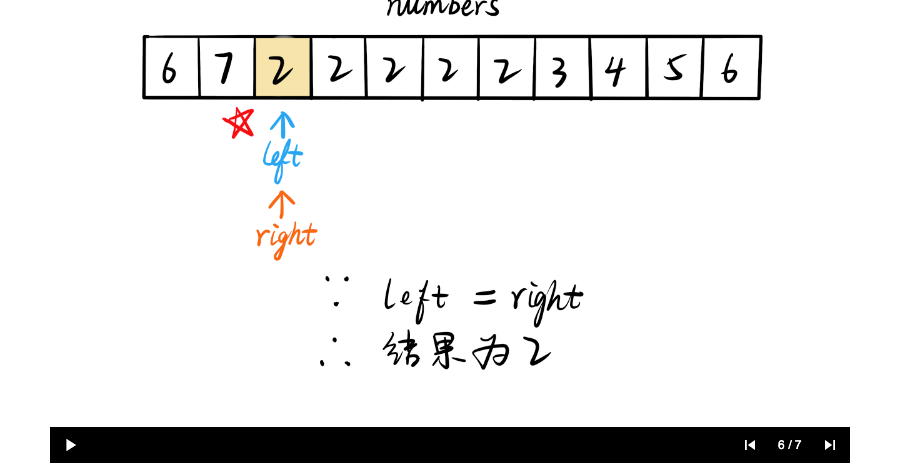 numbers
6 7 2 2 2 2 2 3 4 5 6
left
right
∵ left = right
∴ 结果为 2
6 / 7